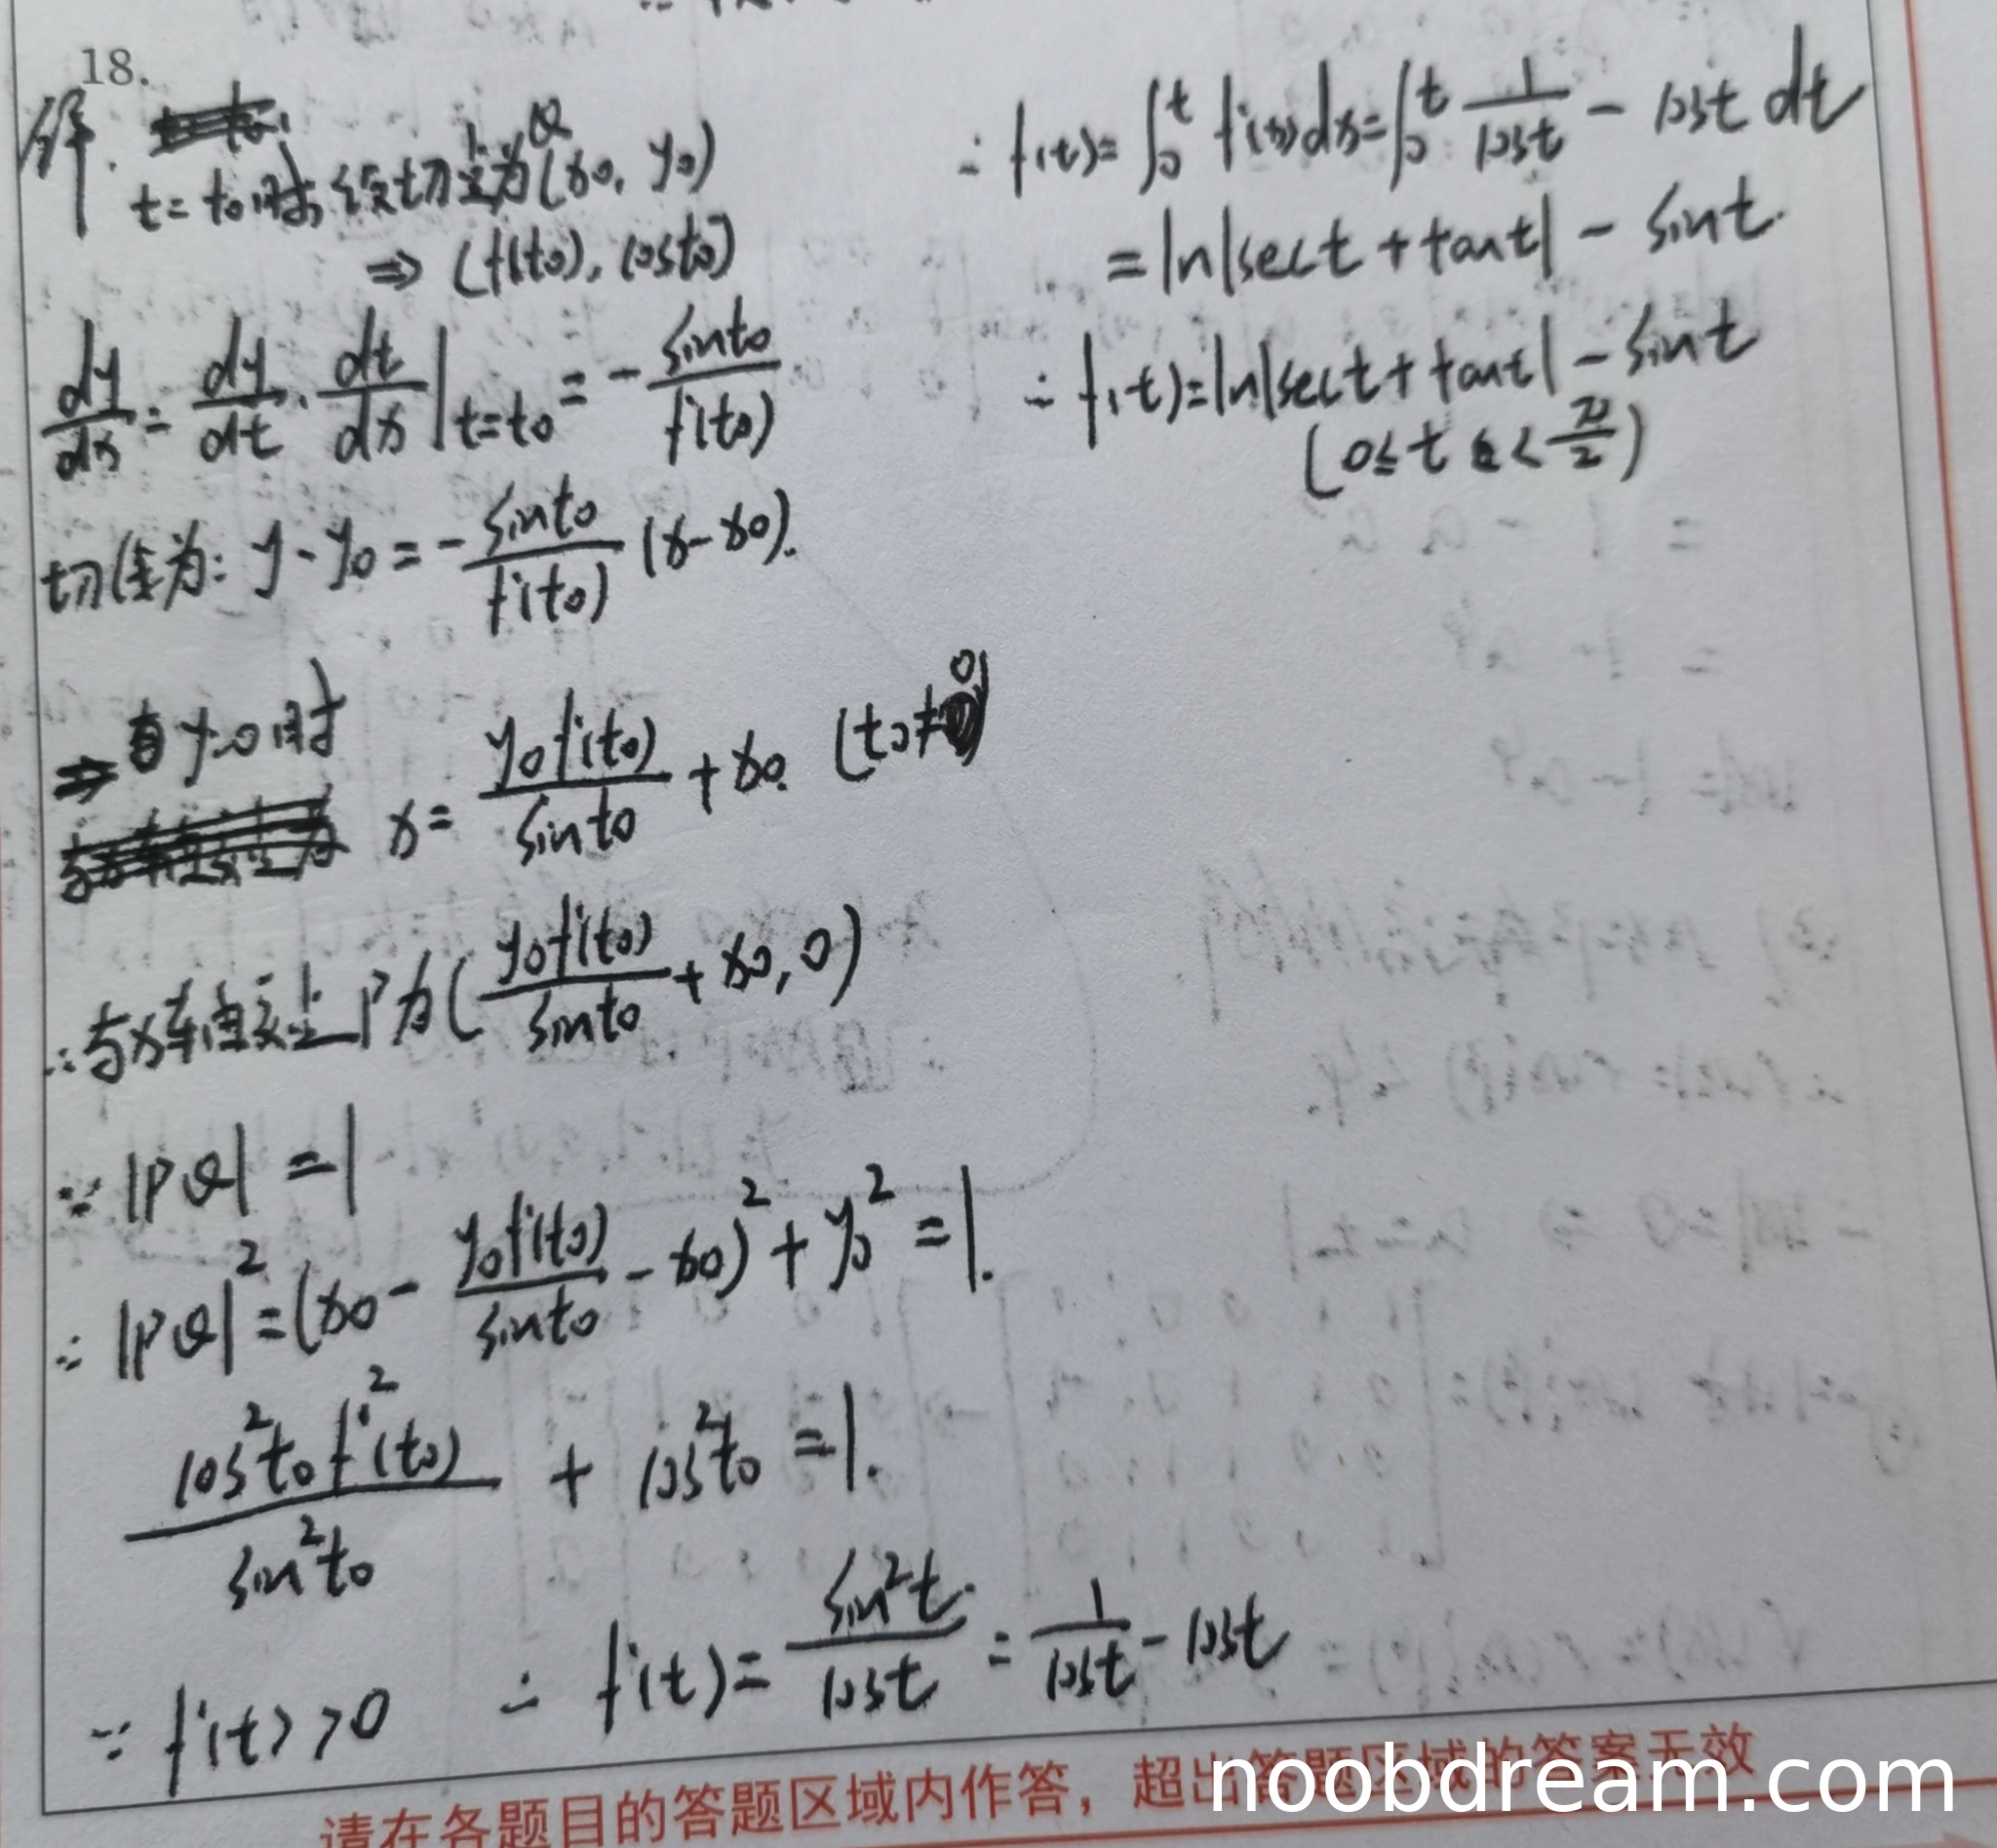 18.
解.
t=t₀时, 该切点为Q(x₀, y₀)
⇒ (f(t₀), cost₀)
dy/dx = dy/dt · dt/dx |t=t₀ = - sint₀/f'(t₀)
切线为: y-y₀ = - sint₀/f'(t₀) (x-x₀).
⇒ 当y=0时
x= y₀f'(t₀)/sint₀ + x₀. (t₀≠0)
∴ 与x轴交点P为( y₀f'(t₀)/sint₀ + x₀, 0)
∵ |PQ| =1
∴ |PQ|²=(x₀- y₀f'(t₀)/sint₀ -x₀)² + y₀² =1.
cos²t₀f'²(t₀)/sin²t₀ + cos²t₀ =1.
∵ f'(t)>0 ∴ f'(t)= sin²t/cost = 1/cost - cost
∴ f(t)= ∫₀ᵗ f'(x)dx= ∫₀ᵗ 1/cost - cost dt
=ln|sect+tant| - sint.
∴ f(t)=ln|sect+tant| - sint
(0≤ t < π/2)
请在各题目的答题区域内作答，超出答题区域的答案无效
noobdream.com